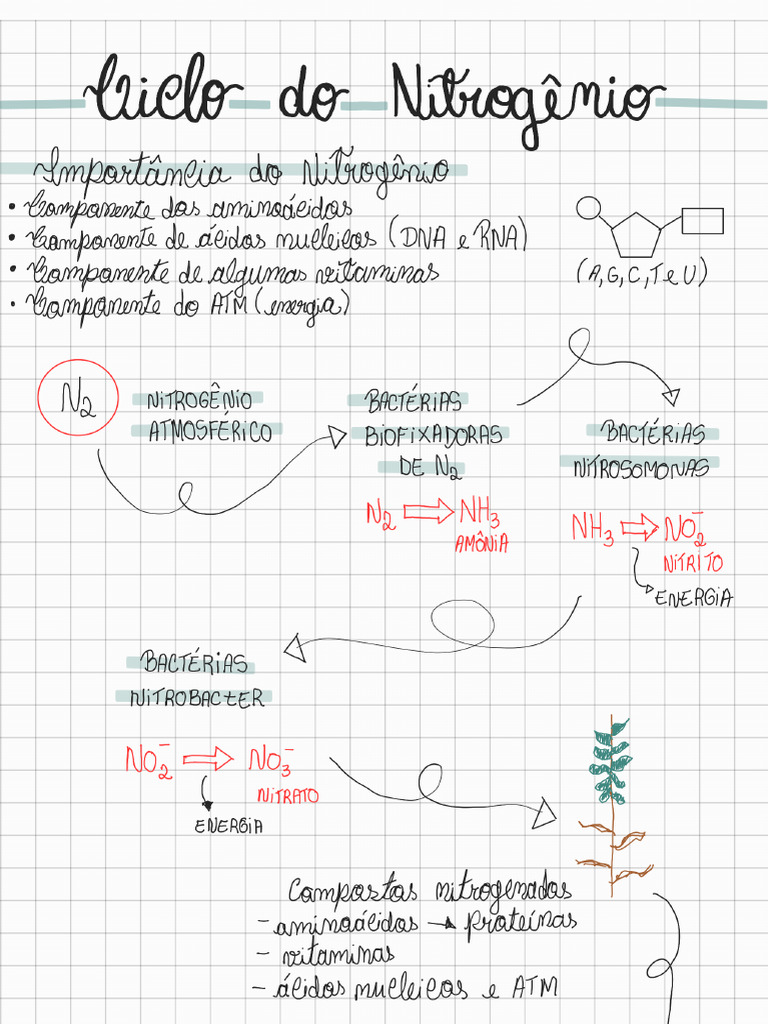 Ciclo do Nitrogênio
Importância do Nitrogênio
• Componente dos aminoácidos
• Componente de ácidos nucleicos (DNA e RNA)
• Componente de algumas vitaminas
• Componente do ATM (energia)
(A, G, C, T e U)
N2
NITROGÊNIO
ATMOSFÉRICO
BACTÉRIAS
BIOFIXADORAS
DE N2
N2 ⇒ NH3
AMÔNIA
BACTÉRIAS
NITROSOMONAS
NH3 ⇒ NO2⁻
NITRITO
ENERGIA
BACTÉRIAS
NITROBACTER
NO2⁻ ⇒ NO3⁻
NITRATO
ENERGIA
Compostos nitrogenados
- aminoácidos → Proteínas
- vitaminas
- ácidos nucleicos e ATM